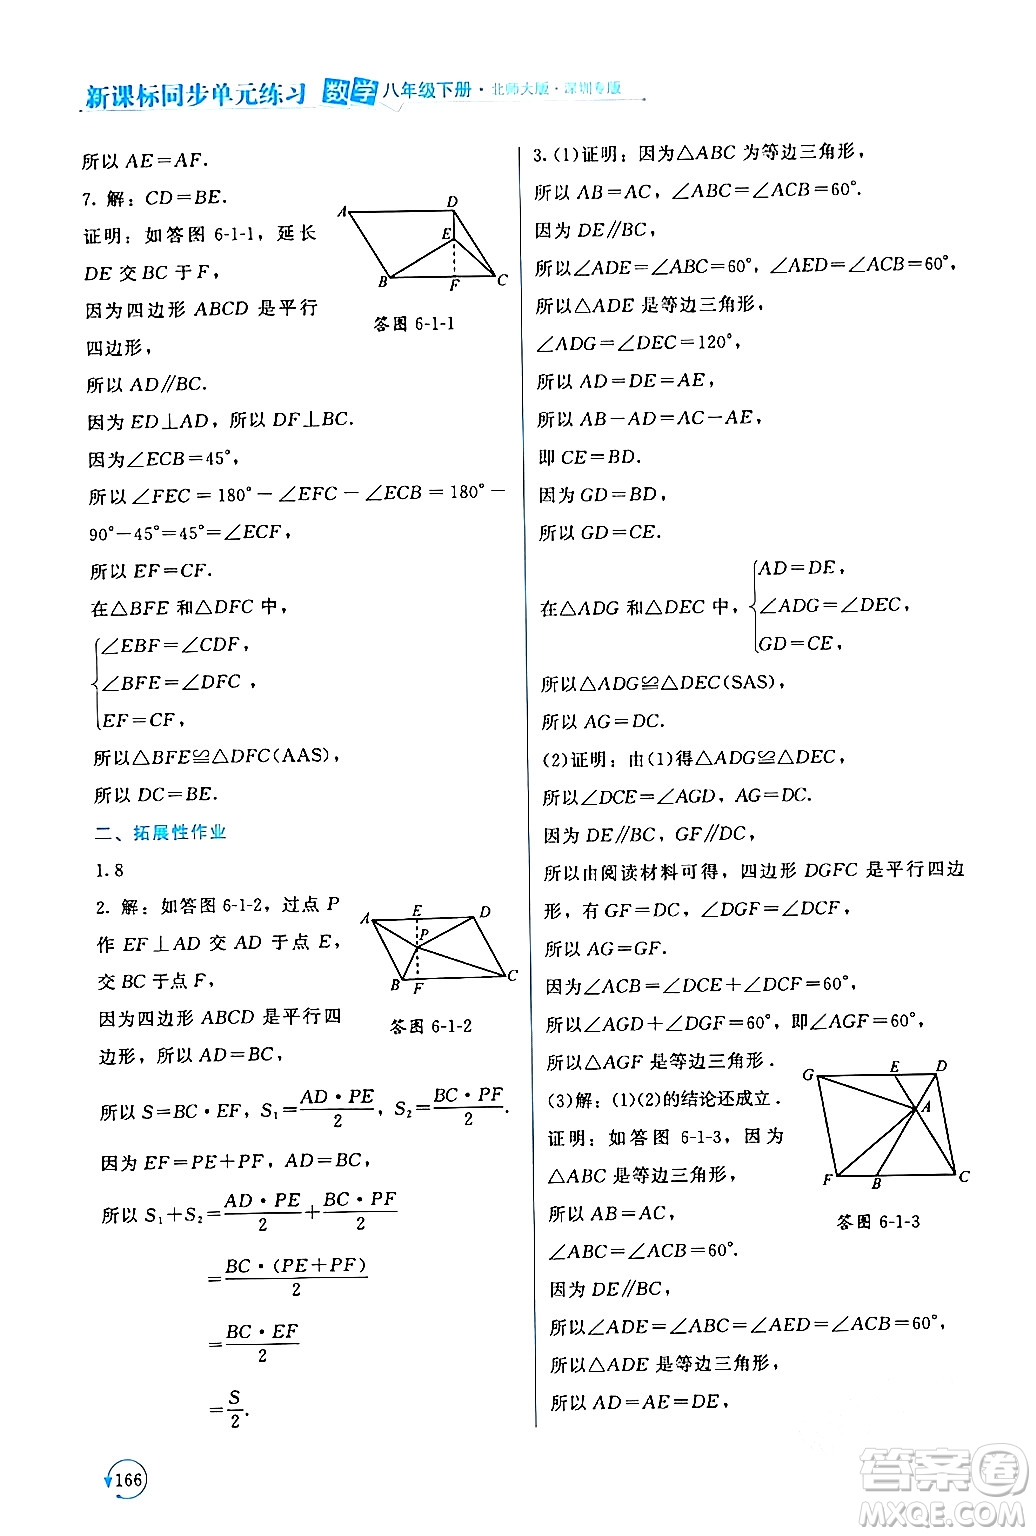 新课标同步单元练习 数学 八年级下册·北师大版·深圳专版
所以 AE=AF.
7. 解：CD=BE.
证明：如答图 6-1-1，延长
DE 交 BC 于 F，
因为四边形 ABCD 是平行
四边形，
A
D
E
B
F
C
答图 6-1-1
所以 AD∥BC.
因为 ED⊥AD，所以 DF⊥BC.
因为∠ECB=45°，
所以∠FEC=180°-∠EFC-∠ECB=180°-
90°-45°=45°=∠ECF，
所以 EF=CF.
在△BFE 和△DFC 中，
{∠EBF=∠CDF，
∠BFE=∠DFC，
EF=CF，
所以△BFE≌△DFC(AAS)，
所以 DC=BE.
二、拓展性作业
1. 8
2. 解：如答图 6-1-2，过点 P
作 EF⊥AD 交 AD 于点 E，
交 BC 于点 F，
因为四边形 ABCD 是平行四
边形，所以 AD=BC，
A
E
D
P
B
F
C
答图 6-1-2
所以 S=BC·EF，S₁=AD·PE/2，S₂=BC·PF/2.
因为 EF=PE+PF，AD=BC，
所以 S₁+S₂=AD·PE/2+BC·PF/2
=BC·(PE+PF)/2
=BC·EF/2
=S/2.
3. (1)证明：因为△ABC 为等边三角形，
所以 AB=AC，∠ABC=∠ACB=60°.
因为 DE∥BC，
所以∠ADE=∠ABC=60°，∠AED=∠ACB=60°，
所以△ADE 是等边三角形，
∠ADG=∠DEC=120°，
所以 AD=DE=AE，
所以 AB-AD=AC-AE，
即 CE=BD.
因为 GD=BD，
所以 GD=CE.
在△ADG 和△DEC 中，{AD=DE，
∠ADG=∠DEC，
GD=CE，
所以△ADG≌△DEC(SAS)，
所以 AG=DC.
(2)证明：由(1)得△ADG≌△DEC，
所以∠DCE=∠AGD，AG=DC.
因为 DE∥BC，GF∥DC，
所以由阅读材料可得，四边形 DGFC 是平行四边
形，有 GF=DC，∠DGF=∠DCF，
所以 AG=GF.
因为∠ACB=∠DCE+∠DCF=60°，
所以∠AGD+∠DGF=60°，即∠AGF=60°，
所以△AGF 是等边三角形.
(3)解：(1)(2)的结论还成立.
证明：如答图 6-1-3，因为
△ABC 是等边三角形，
所以 AB=AC，
∠ABC=∠ACB=60°.
G
E
D
A
F
B
C
答图 6-1-3
因为 DE∥BC，
所以∠ADE=∠ABC=∠AED=∠ACB=60°，
所以△ADE 是等边三角形，
所以 AD=AE=DE，
166
答案圈
MXQE.COM